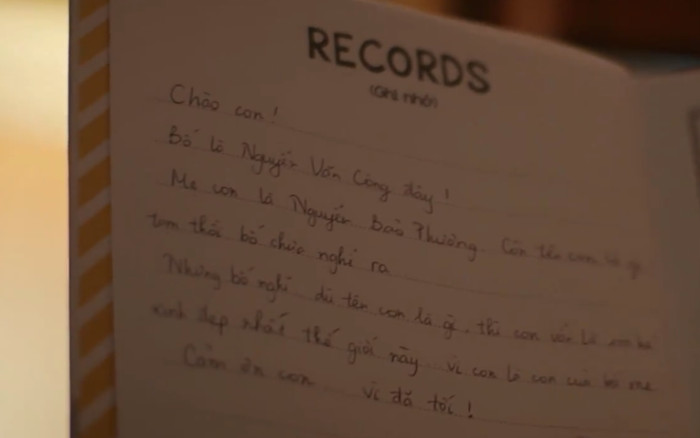 RECORDS
(Ghi nhớ)
Chào con!
Bố là Nguyễn Văn Công đây!
Mẹ con là Nguyễn Bảo Phương Còn tên con là gì
tạm thời bố chưa nghĩ ra
Nhưng bố nghĩ dù tên con là gì, thì con vẫn là em bé
xinh đẹp nhất thế giới này vì con là con của bố mẹ
Cảm ơn con vì đã tới!